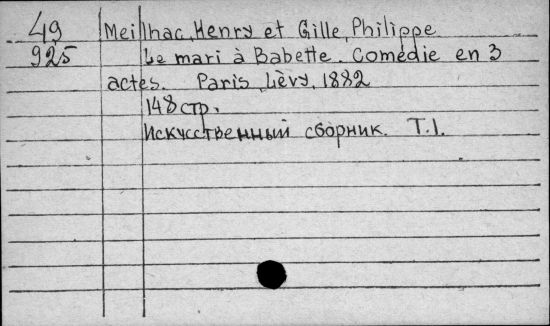 49 Meilhac, Henry et Gille, Philippe
925 Le mari à Babette. Comédie en 3
actes. Paris, Lèvy, 1882
148 стр.
Искусственный сборник. T.1.